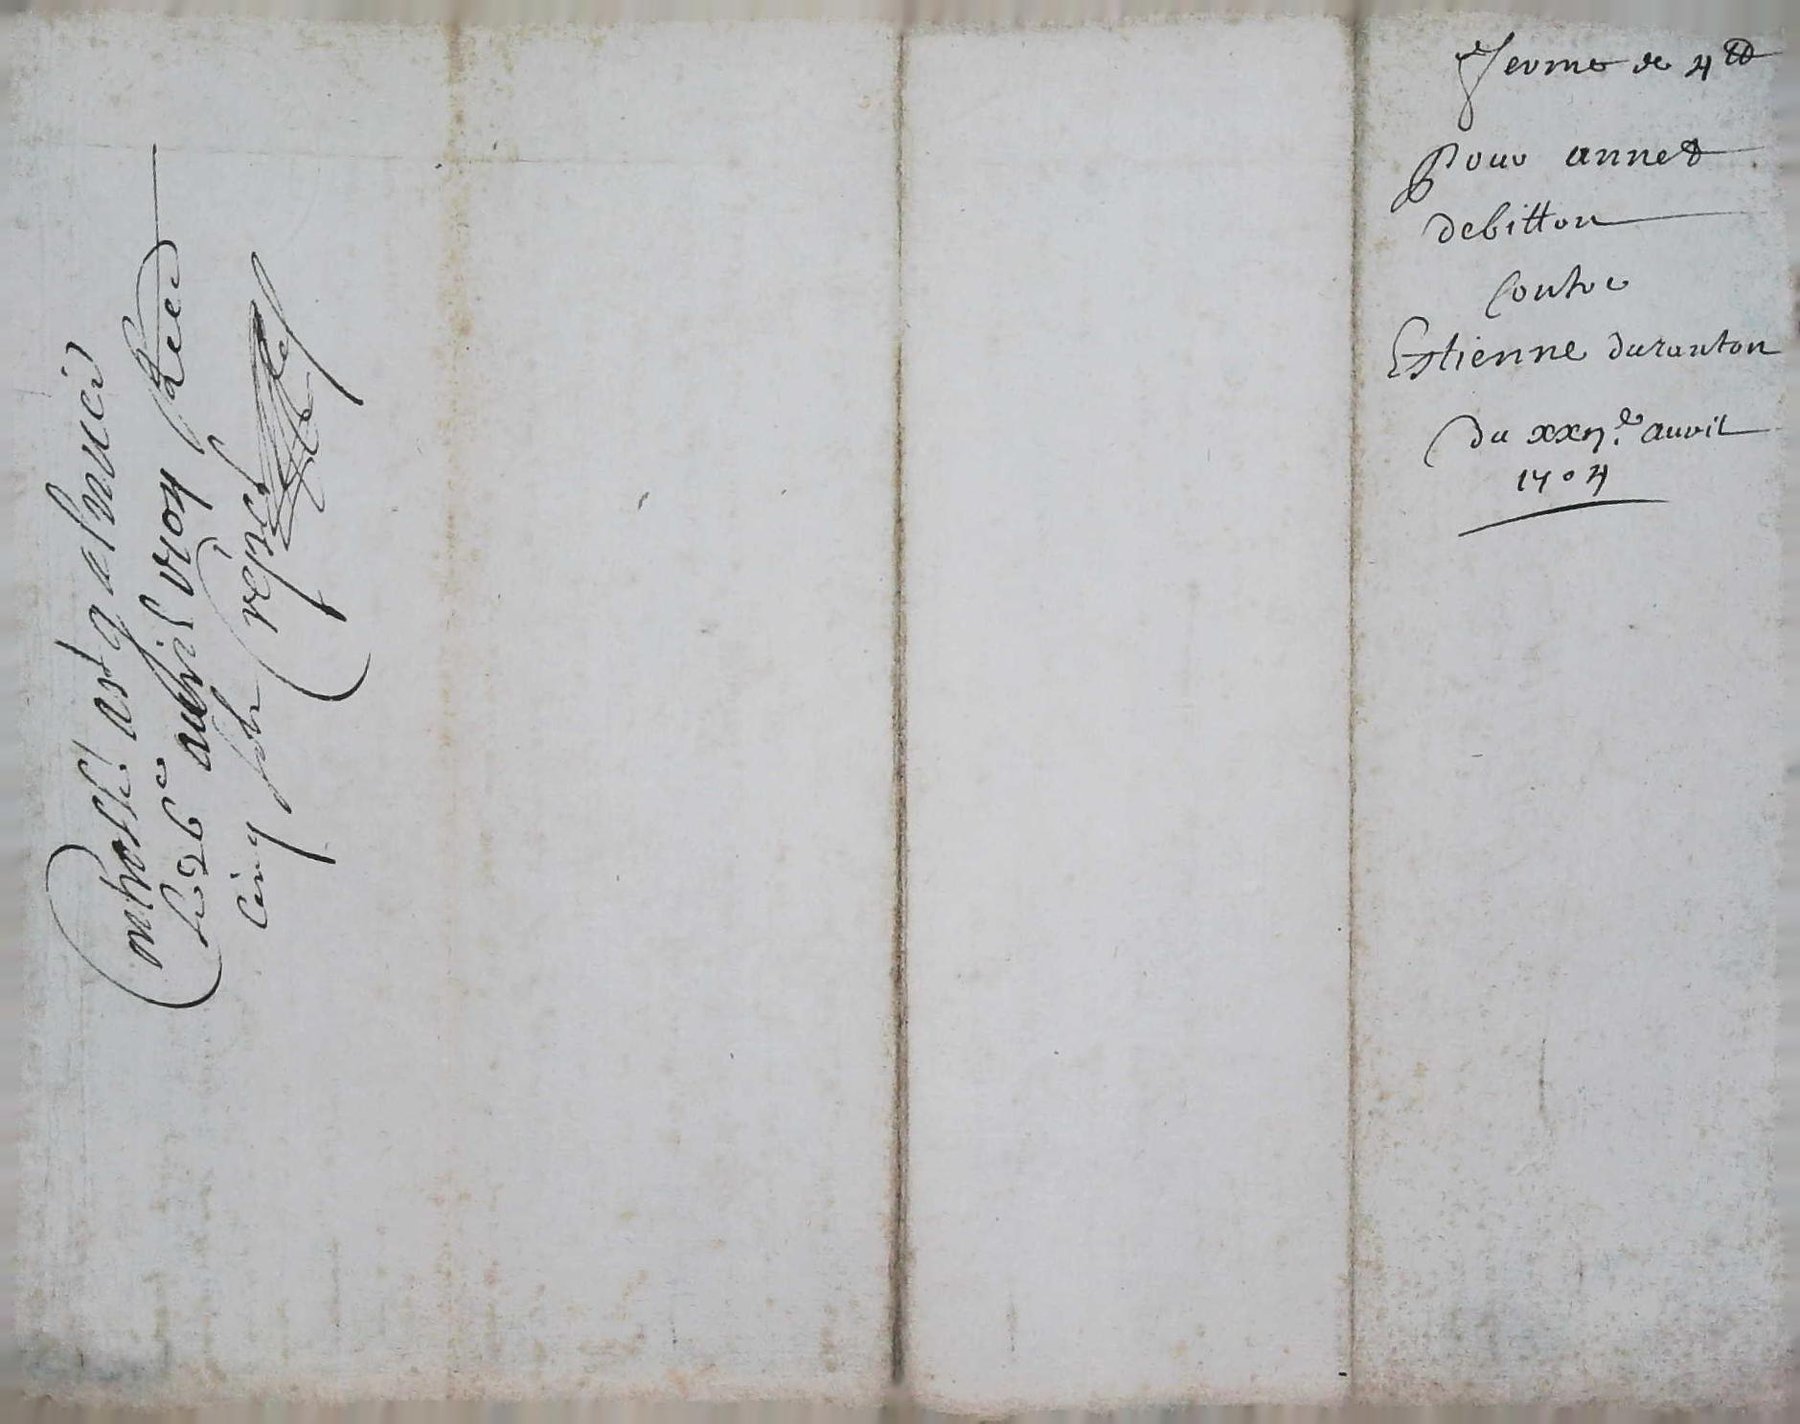 ferme de 4tt
pour annet
debitton
Contre
Estienne duranton
du xxij.e auvril
1704
Controllé art 9 a
le 26e auvril 1704 Receu
Cinq sols